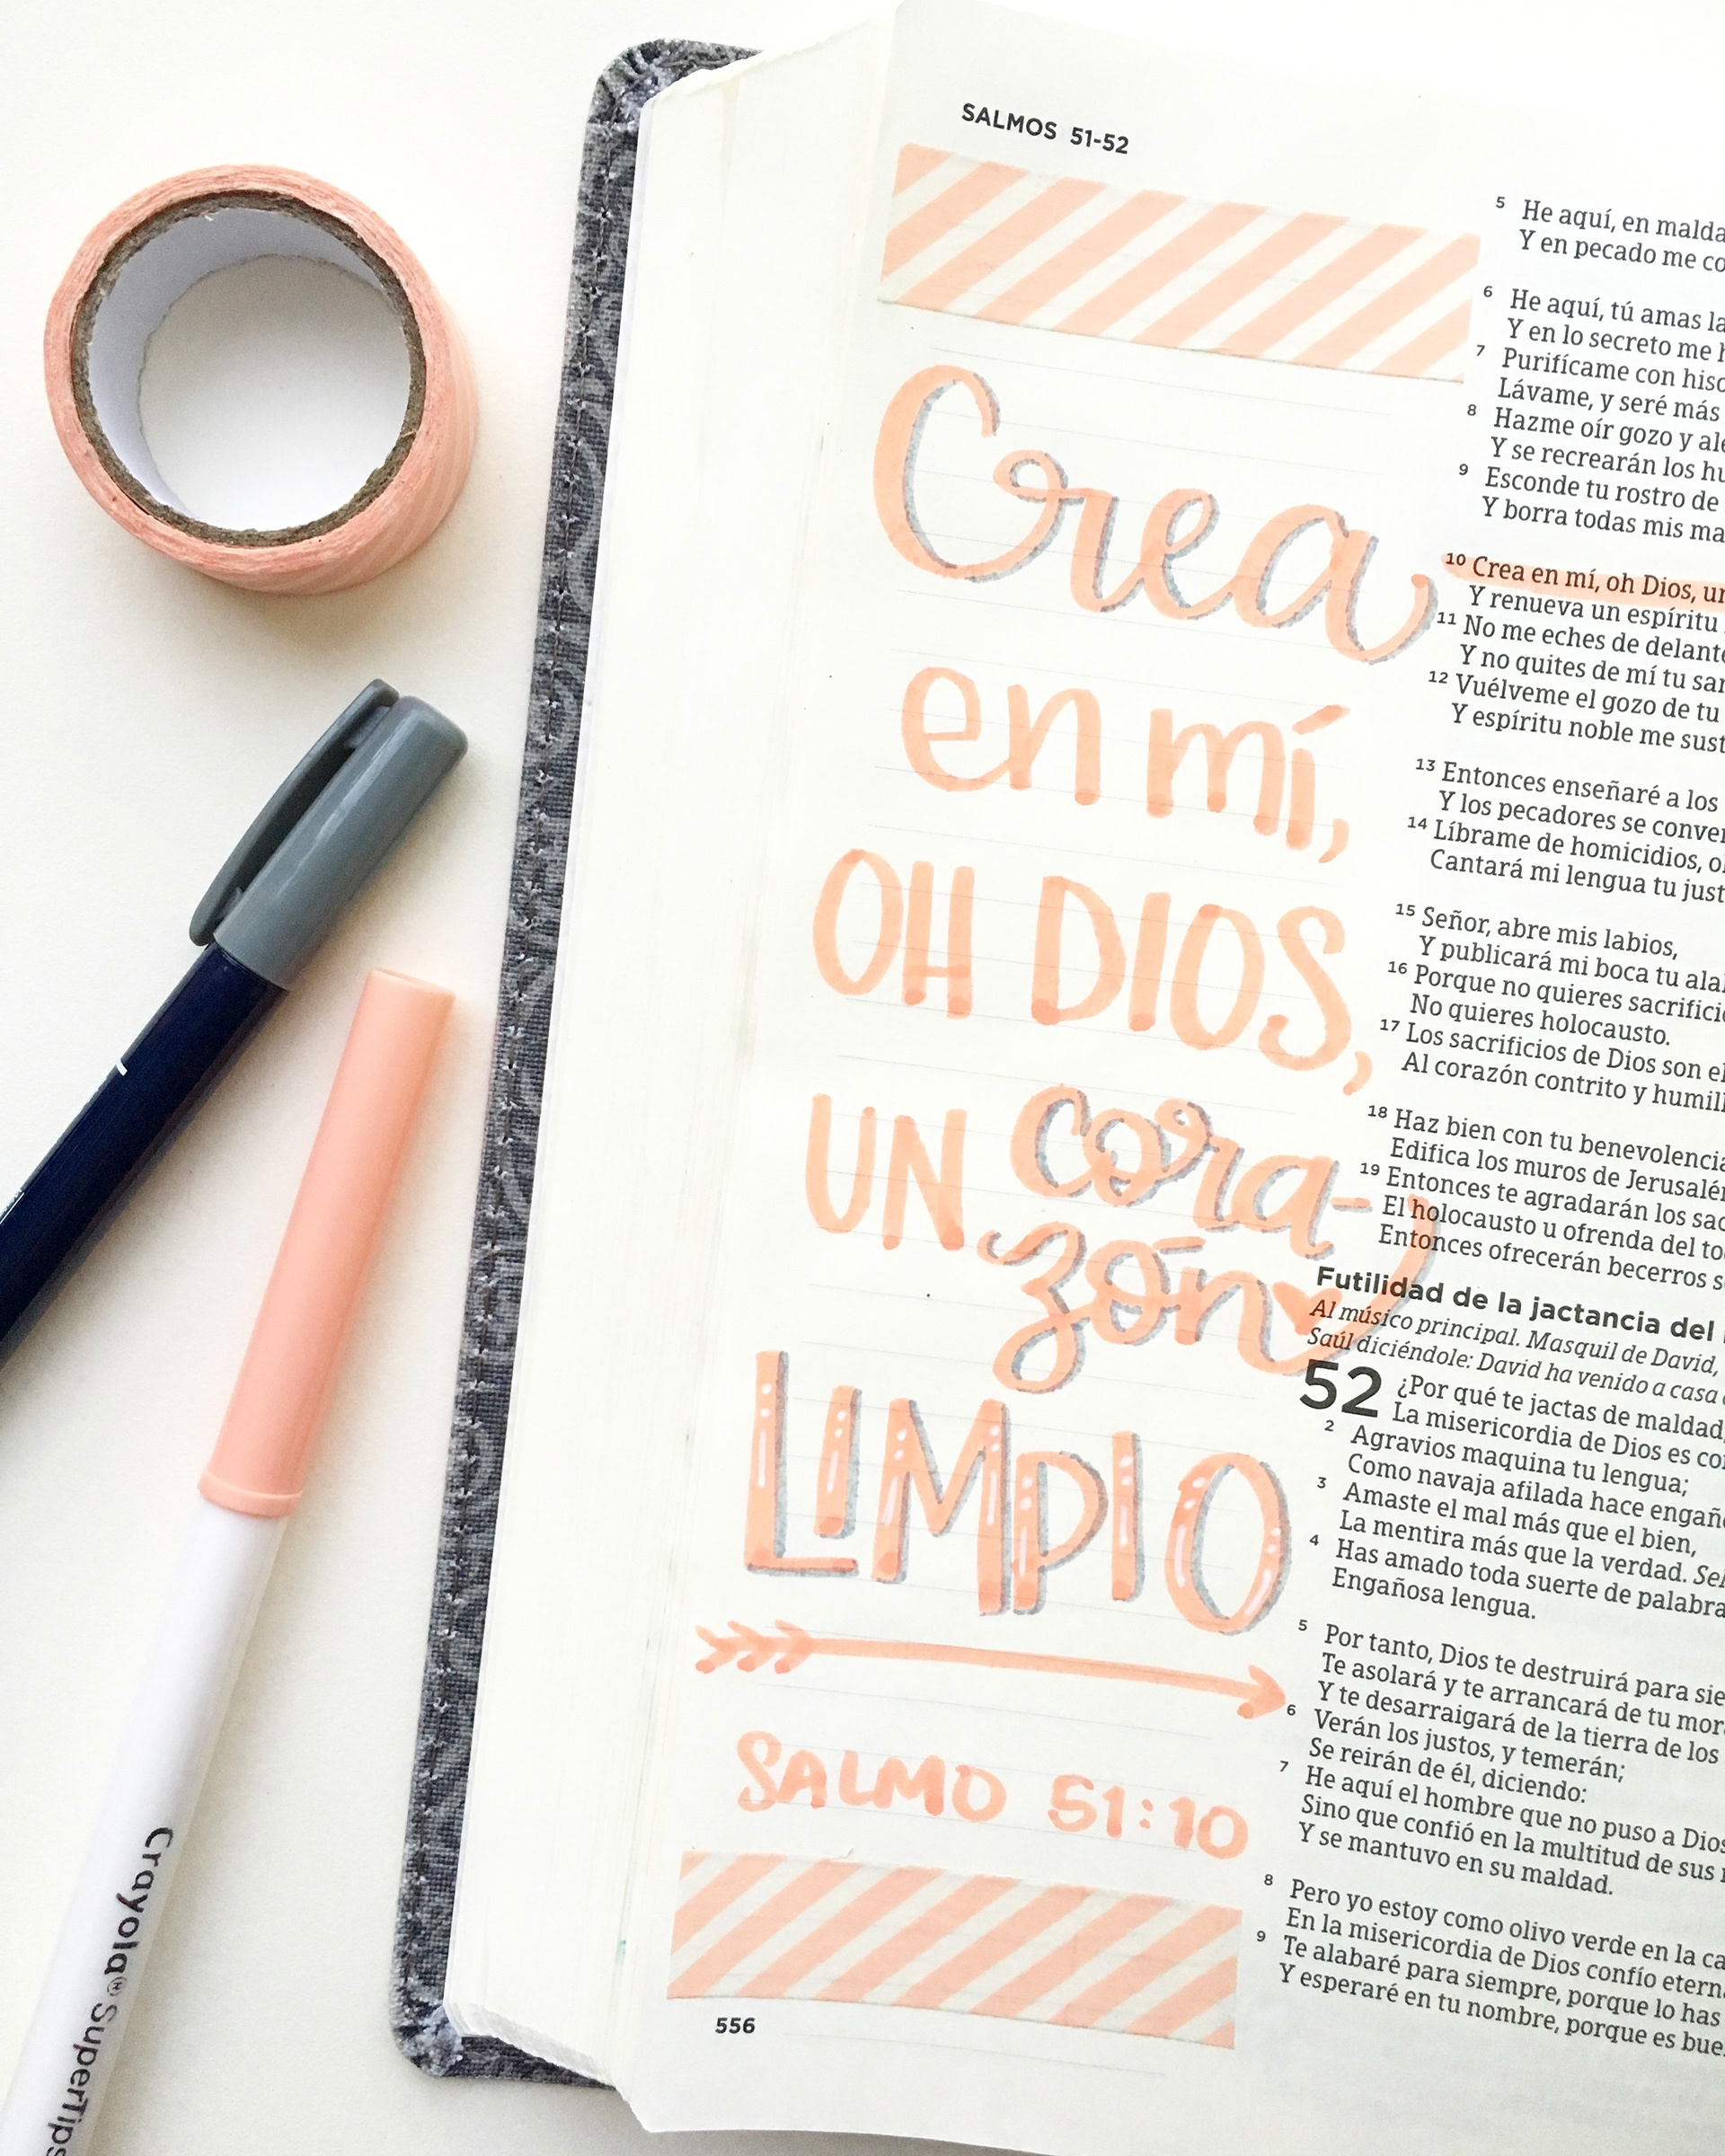 SALMOS 51-52
Crea
en mí,
OH DIOS,
UN cora-
zón
LIMPIO
SALMO 51:10
556
5 He aquí, en
Y en pecado me
6 He aquí, tú amas
Y en lo secreto me
7 Purifícame con
Lávame, y seré más
8 Hazme oír gozo y
Y se recrearán los
9 Esconde tu rostro de
Y borra todas mis
10 Crea en mí, oh Dios,
Y renueva un espíritu
11 No me eches de
Y no quites de mí tu
12 Vuélveme el gozo de tu
Y espíritu noble me
13 Entonces enseñaré a los
Y los pecadores se
14 Líbrame de homicidios,
Cantará mi lengua tu
15 Señor, abre mis labios,
Y publicará mi boca tu
16 Porque no quieres
No quieres holocausto.
17 Los sacrificios de Dios son
Al corazón contrito y
18 Haz bien con tu
Edifica los muros de
19 Entonces te agradarán los
El holocausto u ofrenda del
Entonces ofrecerán becerros
Futilidad de la jactancia del
Al músico principal. Masquil de David,
Saúl diciéndole: David ha venido a casa
52 ¿Por qué te jactas de maldad,
La misericordia de Dios es
2 Agravios maquina tu lengua;
Como navaja afilada hace
3 Amaste el mal más que el bien,
La mentira más que la verdad.
4 Has amado toda suerte de
Engañosa lengua.
5 Por tanto, Dios te destruirá para
Te asolará y te arrancará de tu
Y te desarraigará de la tierra de los
6 Verán los justos, y temerán;
Se reirán de él, diciendo:
7 He aquí el hombre que no puso a
Sino que confió en la multitud de sus
Y se mantuvo en su maldad.
8 Pero yo estoy como olivo verde en la
En la misericordia de Dios confío
9 Te alabaré para siempre, porque lo has
Y esperaré en tu nombre, porque es
Crayola® SuperTips